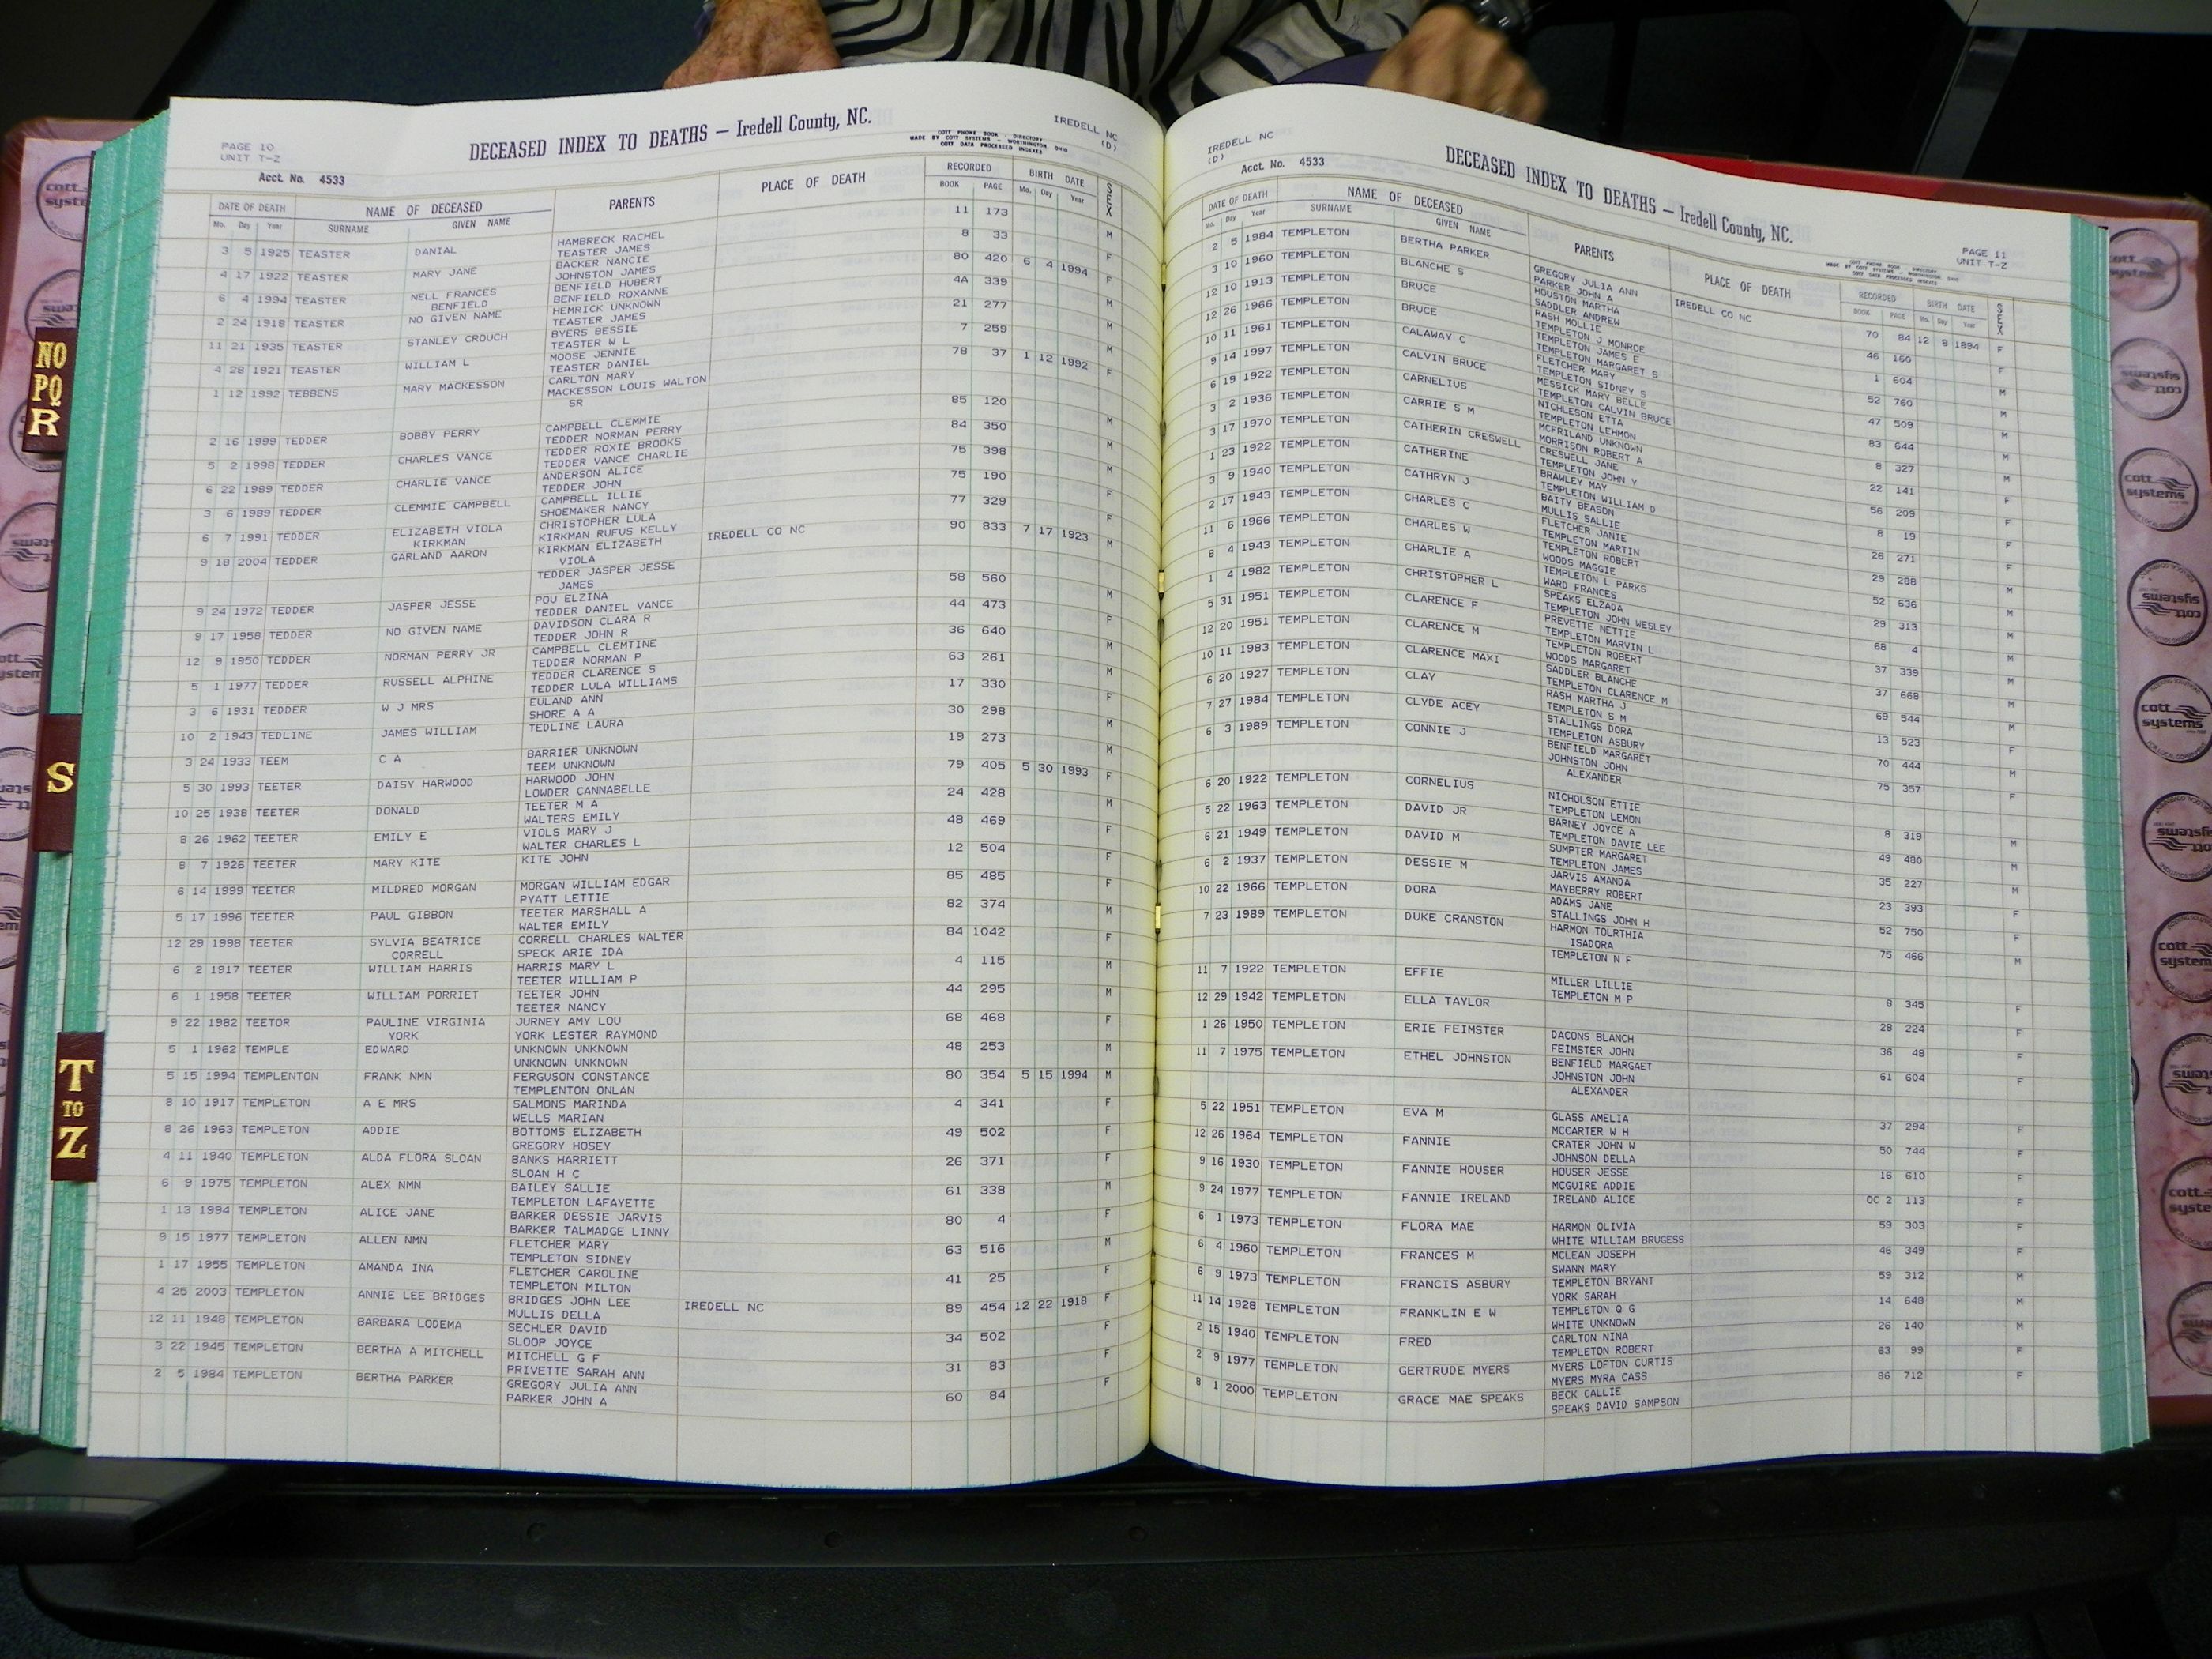 PAGE 10
UNIT T-Z
DECEASED INDEX TO DEATHS — Iredell County, NC.
COTT PHONE BOOK - DIRECTORY
MADE BY COTT SYSTEMS - WORTHINGTON, OHIO
COTT DATA PROCESSED INDEXES
IREDELL NC
(D)
Acct. No. 4533
DATE OF DEATH NAME OF DECEASED PARENTS PLACE OF DEATH RECORDED BIRTH DATE SEX
Mo. Day Year SURNAME GIVEN NAME BOOK PAGE Mo. Day Year
3 5 1925 TEASTER DANIAL HAMBRECK RACHEL 11 173 M
TEASTER JAMES
4 17 1922 TEASTER MARY JANE BACKER NANCIE 8 33 F
JOHNSTON JAMES
6 4 1994 TEASTER NELL FRANCES BENFIELD HUBERT 80 420 6 4 1994 F
BENFIELD BENFIELD ROXANNE
2 24 1918 TEASTER NO GIVEN NAME HEMRICK UNKNOWN 4A 339
TEASTER JAMES
11 21 1935 TEASTER STANLEY CROUCH BYERS BESSIE 21 277 M
TEASTER W L
4 28 1921 TEASTER WILLIAM L MOOSE JENNIE 7 259 M
TEASTER DANIEL
1 12 1992 TEBBENS MARY MACKESSON CARLTON MARY 78 37 1 12 1992 F
MACKESSON LOUIS WALTON
SR
2 16 1999 TEDDER BOBBY PERRY CAMPBELL CLEMMIE 85 120 M
TEDDER NORMAN PERRY
5 2 1998 TEDDER CHARLES VANCE TEDDER ROXIE BROOKS 84 350 M
TEDDER VANCE CHARLIE
6 22 1989 TEDDER CHARLIE VANCE ANDERSON ALICE 75 398 M
TEDDER JOHN
3 6 1989 TEDDER CLEMMIE CAMPBELL CAMPBELL ILLIE 75 190 F
SHOEMAKER NANCY
6 7 1991 TEDDER ELIZABETH VIOLA CHRISTOPHER LULA 77 329 F
KIRKMAN KIRKMAN RUFUS KELLY
9 18 2004 TEDDER GARLAND AARON KIRKMAN ELIZABETH IREDELL CO NC 90 833 7 17 1923 M
VIOLA
TEDDER JASPER JESSE
JAMES
9 24 1972 TEDDER JASPER JESSE POU ELZINA 58 560 M
TEDDER DANIEL VANCE
9 17 1958 TEDDER NO GIVEN NAME DAVIDSON CLARA R 44 473 F
TEDDER JOHN R
12 9 1950 TEDDER NORMAN PERRY JR CAMPBELL CLEMTINE 36 640 M
TEDDER NORMAN P
5 1 1977 TEDDER RUSSELL ALPHINE TEDDER CLARENCE S 63 261 M
TEDDER LULA WILLIAMS
3 6 1931 TEDDER W J MRS EULAND ANN 17 330 F
SHORE A A
10 2 1943 TEDLINE JAMES WILLIAM TEDLINE LAURA 30 298 M
3 24 1933 TEEM C A BARRIER UNKNOWN 19 273 M
TEEM UNKNOWN
5 30 1993 TEETER DAISY HARWOOD HARWOOD JOHN 79 405 5 30 1993 F
LOWDER CANNABELLE
10 25 1938 TEETER DONALD TEETER M A 24 428 M
WALTERS EMILY
8 26 1962 TEETER EMILY E VIOLS MARY J 48 469 F
WALTER CHARLES L
8 7 1926 TEETER MARY KITE KITE JOHN 12 504 F
6 14 1999 TEETER MILDRED MORGAN MORGAN WILLIAM EDGAR 85 485 F
PYATT LETTIE
5 17 1996 TEETER PAUL GIBBON TEETER MARSHALL A 82 374 M
WALTER EMILY
12 29 1998 TEETER SYLVIA BEATRICE CORRELL CHARLES WALTER 84 1042 F
CORRELL SPECK ARIE IDA
6 2 1917 TEETER WILLIAM HARRIS HARRIS MARY L 4 115 M
TEETER WILLIAM P
6 1 1958 TEETER WILLIAM PORRIET TEETER JOHN 44 295 M
TEETER NANCY
9 22 1982 TEETOR PAULINE VIRGINIA JURNEY AMY LOU 68 468 F
YORK YORK LESTER RAYMOND
5 1 1962 TEMPLE EDWARD UNKNOWN UNKNOWN 48 253 M
UNKNOWN UNKNOWN
5 15 1994 TEMPLENTON FRANK NMN FERGUSON CONSTANCE 80 354 5 15 1994 M
TEMPLENTON ONLAN
8 10 1917 TEMPLETON A E MRS SALMONS MARINDA 4 341 F
WELLS MARIAN
8 26 1963 TEMPLETON ADDIE BOTTOMS ELIZABETH 49 502 F
GREGORY HOSEY
4 11 1940 TEMPLETON ALDA FLORA SLOAN BANKS HARRIETT 26 371 F
SLOAN H C
6 9 1975 TEMPLETON ALEX NMN BAILEY SALLIE 61 338 M
TEMPLETON LAFAYETTE
1 13 1994 TEMPLETON ALICE JANE BARKER DESSIE JARVIS 80 4 F
BARKER TALMADGE LINNY
9 15 1977 TEMPLETON ALLEN NMN FLETCHER MARY 63 516 M
TEMPLETON SIDNEY
1 17 1955 TEMPLETON AMANDA INA FLETCHER CAROLINE 41 25 F
TEMPLETON MILTON
4 25 2003 TEMPLETON ANNIE LEE BRIDGES BRIDGES JOHN LEE IREDELL NC 89 454 12 22 1918 F
MULLIS DELLA
12 11 1948 TEMPLETON BARBARA LODEMA SECHLER DAVID 34 502 F
SLOOP JOYCE
3 22 1945 TEMPLETON BERTHA A MITCHELL MITCHELL G F 31 83 F
PRIVETTE SARAH ANN
2 5 1984 TEMPLETON BERTHA PARKER GREGORY JULIA ANN 60 84 F
PARKER JOHN A
IREDELL NC
(D)
DECEASED INDEX TO DEATHS — Iredell County, NC.
PAGE 11
UNIT T-Z
Acct. No. 4533
DATE OF DEATH NAME OF DECEASED PARENTS PLACE OF DEATH RECORDED BIRTH DATE SEX
Mo. Day Year SURNAME GIVEN NAME BOOK PAGE Mo. Day Year
2 5 1984 TEMPLETON BERTHA PARKER GREGORY JULIA ANN IREDELL CO NC 70 84 12 8 1894 F
PARKER JOHN A
3 10 1960 TEMPLETON BLANCHE S HOUSTON MARTHA 46 160 F
SADDLER ANDREW
12 10 1913 TEMPLETON BRUCE RASH MOLLIE 1 604 M
TEMPLETON J MONROE
12 26 1966 TEMPLETON BRUCE TEMPLETON JAMES E 52 760 M
TEMPLETON MARGARET S
10 11 1961 TEMPLETON CALAWAY C FLETCHER MARY 47 509 M
TEMPLETON SIDNEY S
9 14 1997 TEMPLETON CALVIN BRUCE MESSICK MARY BELLE 83 644 M
TEMPLETON CALVIN BRUCE
6 19 1922 TEMPLETON CARNELIUS NICHLESON ETTA 8 327 M
TEMPLETON LEHMON
3 2 1936 TEMPLETON CARRIE S M MCFRILAND UNKNOWN 22 141 F
MORRISON ROBERT A
3 17 1970 TEMPLETON CATHERIN CRESWELL CRESWELL JANE 56 209 F
TEMPLETON JOHN Y
1 23 1922 TEMPLETON CATHERINE BRAWLEY MAY 8 19 F
TEMPLETON WILLIAM D
3 9 1940 TEMPLETON CATHRYN J BAITY BEASON 26 271 F
MULLIS SALLIE
2 17 1943 TEMPLETON CHARLES C FLETCHER JANIE 29 288 M
TEMPLETON MARTIN
11 6 1966 TEMPLETON CHARLES W TEMPLETON ROBERT 52 636 M
WOODS MAGGIE
8 4 1943 TEMPLETON CHARLIE A TEMPLETON L PARKS 29 313 M
WARD FRANCES
1 4 1982 TEMPLETON CHRISTOPHER L SPEAKS ELZADA 68 4 M
TEMPLETON JOHN WESLEY
5 31 1951 TEMPLETON CLARENCE F PREVETTE NETTIE 37 339 M
TEMPLETON MARVIN L
12 20 1951 TEMPLETON CLARENCE M TEMPLETON ROBERT 37 668 M
WOODS MARGARET
10 11 1983 TEMPLETON CLARENCE MAXI SADDLER BLANCHE 69 544 M
TEMPLETON CLARENCE M
6 20 1927 TEMPLETON CLAY RASH MARTHA J 13 523 F
TEMPLETON S M
7 27 1984 TEMPLETON CLYDE ACEY STALLINGS DORA 70 444 M
TEMPLETON ASBURY
6 3 1989 TEMPLETON CONNIE J BENFIELD MARGARET 75 357 F
JOHNSTON JOHN
ALEXANDER
6 20 1922 TEMPLETON CORNELIUS NICHOLSON ETTIE 8 319 M
TEMPLETON LEMON
5 22 1963 TEMPLETON DAVID JR BARNEY JOYCE A 49 480 M
TEMPLETON DAVIE LEE
6 21 1949 TEMPLETON DAVID M SUMPTER MARGARET 35 227 M
TEMPLETON JAMES
6 2 1937 TEMPLETON DESSIE M JARVIS AMANDA 23 393 F
MAYBERRY ROBERT
10 22 1966 TEMPLETON DORA ADAMS JANE 52 750 F
STALLINGS JOHN H
7 23 1989 TEMPLETON DUKE CRANSTON HARMON TOLRTHIA 75 466 M
ISADORA
TEMPLETON N F
11 7 1922 TEMPLETON EFFIE MILLER LILLIE 8 345 F
TEMPLETON M P
12 29 1942 TEMPLETON ELLA TAYLOR 28 224 F
1 26 1950 TEMPLETON ERIE FEIMSTER DACONS BLANCH 36 48 F
FEIMSTER JOHN
11 7 1975 TEMPLETON ETHEL JOHNSTON BENFIELD MARGAET 61 604 F
JOHNSTON JOHN
ALEXANDER
5 22 1951 TEMPLETON EVA M GLASS AMELIA 37 294 F
MCCARTER W H
12 26 1964 TEMPLETON FANNIE CRATER JOHN W 50 744 F
JOHNSON DELLA
9 16 1930 TEMPLETON FANNIE HOUSER HOUSER JESSE 16 610 F
MCGUIRE ADDIE
9 24 1977 TEMPLETON FANNIE IRELAND IRELAND ALICE OC 2 113 F
6 1 1973 TEMPLETON FLORA MAE HARMON OLIVIA 59 303 F
WHITE WILLIAM BRUGESS
6 4 1960 TEMPLETON FRANCES M MCLEAN JOSEPH 46 349 F
SWANN MARY
6 9 1973 TEMPLETON FRANCIS ASBURY TEMPLETON BRYANT 59 312 M
YORK SARAH
11 14 1928 TEMPLETON FRANKLIN E W TEMPLETON Q G 14 648 M
WHITE UNKNOWN
2 15 1940 TEMPLETON FRED CARLTON NINA 26 140 M
TEMPLETON ROBERT
2 9 1977 TEMPLETON GERTRUDE MYERS MYERS LOFTON CURTIS 63 99 F
MYERS MYRA CASS
8 1 2000 TEMPLETON GRACE MAE SPEAKS BECK CALLIE 86 712 F
SPEAKS DAVID SAMPSON
NO
PQ
R
S
T
TO
Z
cott systems